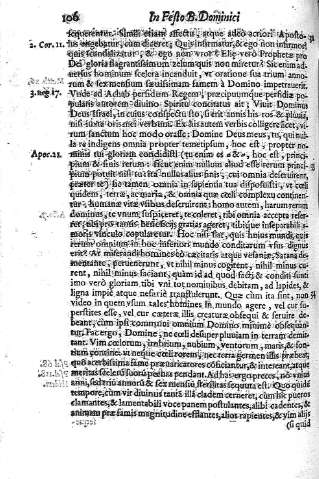 106 In Festo B. Dominici
sequerentur. Simili etiam affectu, atque adeo acriori Aposto-
2. Cor. 11. lus angebatur, cum diceret; Quis infirmatur, & ego non infirmor
quis scandalizatur, & ego non vror? Elię verò Prophetæ pro
Dei gloria flagrantissimum zelum quis non miretur? Sic enim ad-
uersus hominum scelera incanduit, vt oratione sua trium anno-
rum & sex mensium sæuissimam famem à Domino impetrauerit.
3. reg 17. Vnde ad Achab perfidum Regem, præcipuumque perfidiæ po-
pularis autorem diuino Spiritu concitatus ait; Viuit Dominus
Deus Israel, in cuius conspectu sto, si erit annis his ros & pluuia,
nisi iuxta oris mei verba. Ex his autem verbis colligere licet, vi-
rum sanctum hoc modo orasse: Domine Deus meus, tu, qui nul-
la re indigens omnia propter temetipsum, hoc est, propter no-
Apoc. 21. minis tui gloriam condidisti (tu enim es α & ω, hoc est, princi-
pium & finis rerum: sicut enim nullius aliud esse rerum princi-
pium potuit nisi tu: ita nullus alius finis, cui omnia deseruirent,
præter te) sic tamen omnia in sapientia tua disposuisti, vt cœli
quidem, terræ, aquaria, & omnia quæ cœli complexu continen-
tur, humanæ vitæ vsibus deseruirent: homo autem, harum rerum
dominus, te vnum suspiceret, te coleret, tibi omnia accepta refer-
ret, tibi pro tantis beneficijs gratias ageret, tibique inseparabili a-
moris vinculo copularetur. Hoc
rerum omnium in hoc inferiori mundo conditarum vsus dignus
erit? At miserandi homines eò cæcitatis atque vesaniæ, Satana de-
mentante, peruenerunt, vt nihil minus cogitent, nihil minus cu-
rent, nihil minus faciant, quàm id ad quod facti & conditi sunt:
imo verò gloriam tibi vni tot nominibus debitam, ad lapides, &
ligna impiè atque nefariè transtulerunt. Quæ cùm ita sint, non
video in quem vsum tales homines in mundo agere, vel cur su-
perstites esse, vel cur cæteræ illis creaturæ obsequi & seruire de-
beant, cùm ipsi communi omnium Domino minimè obsequan-
tur. Fac ergo, Domine, ne cœli desuper pluuiam in terram demit-
tant. Vim cœlorum, imbrium, nubium, ventorum, maris, & fon-
tium contine: vt neque cœli rorem, nec terra germen illis præbeat,
quò acerbissima fame præuaricatores conficiantur, & intereant, atque
meritas scelerum suorum pœnas pendant. Ad has ergo preces, nō vnius
anni, sed trium annorū & sex mensiū sterilitas sequuta est. Quo quidē
tempore, cùm vir diuinus tantā illā cladem cerneret, cùm hic pueros
clamantes, & lamentabili voce panem postulantes, alibi cadentes, &
animam præ famis magnitudine efflantes, alios rapientes, & vim alijs
(si quid